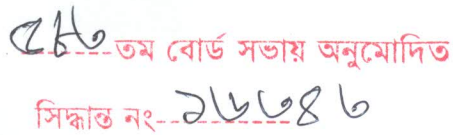 তম বোর্ড সভায় অনুমোদিত
সিদ্ধান্ত নং--১৬৩৪৩